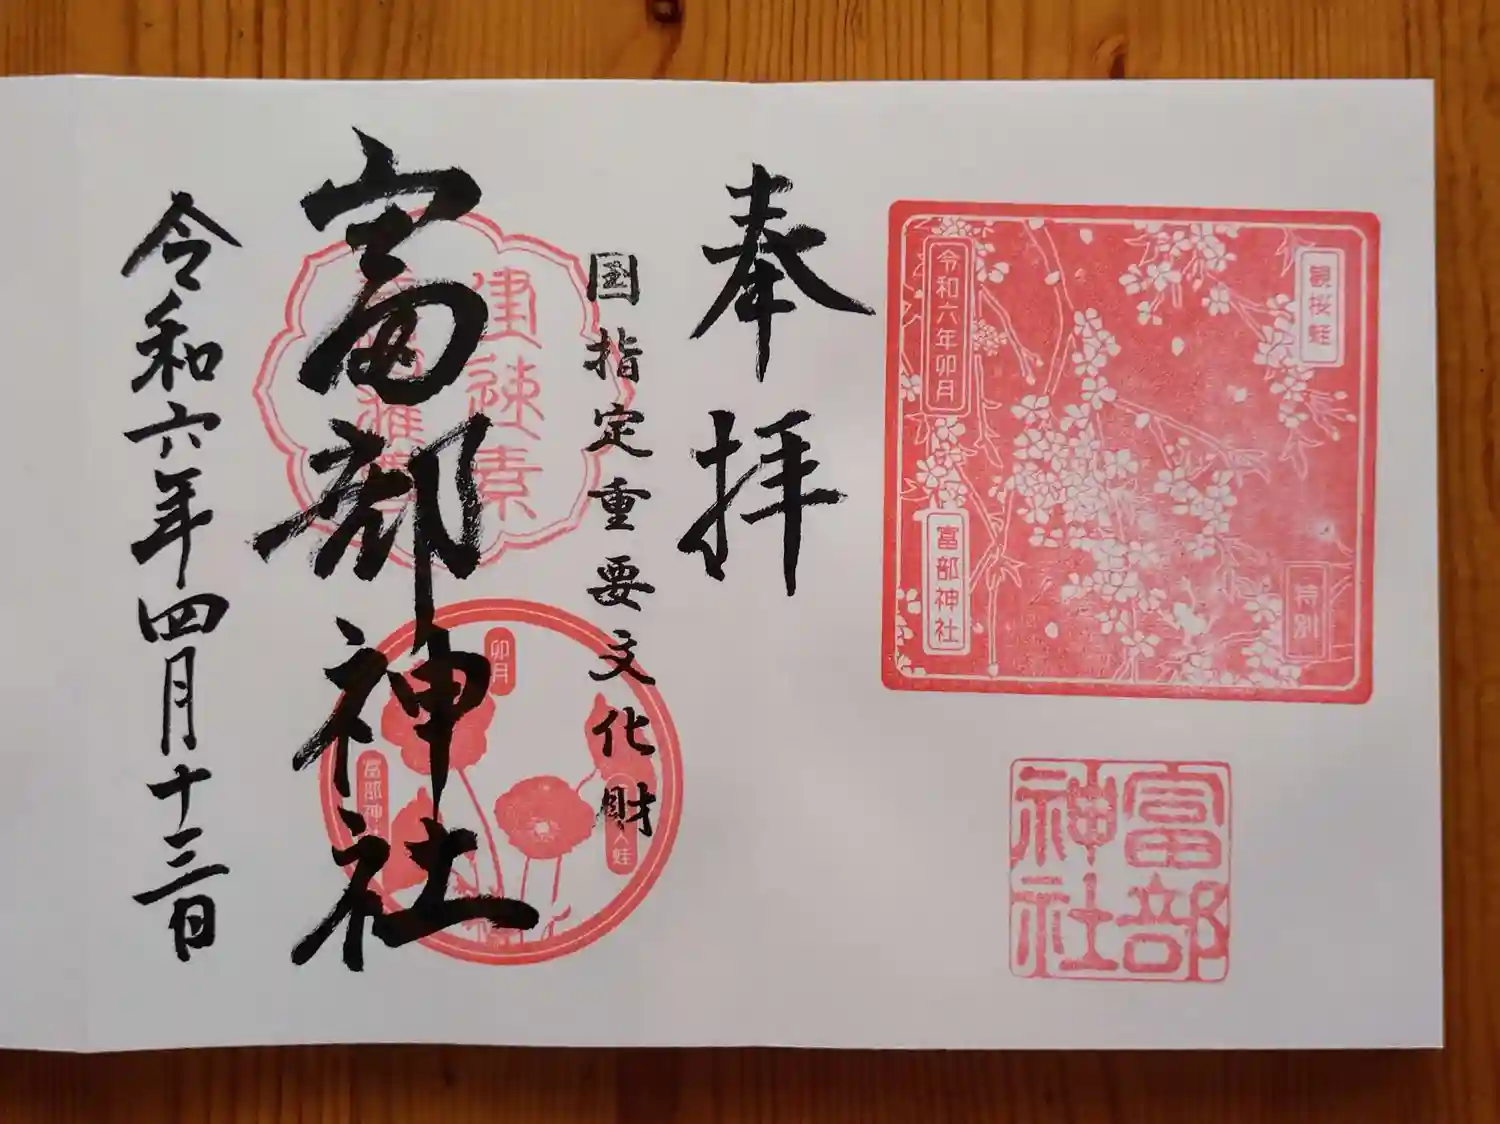 観桜蛙
特別
令和六年卯月
富部神社
富部
神社
奉拝
国指定重要文化財
建速素
富部神社
卯月
富部神
蛙
令和六年四月十三日